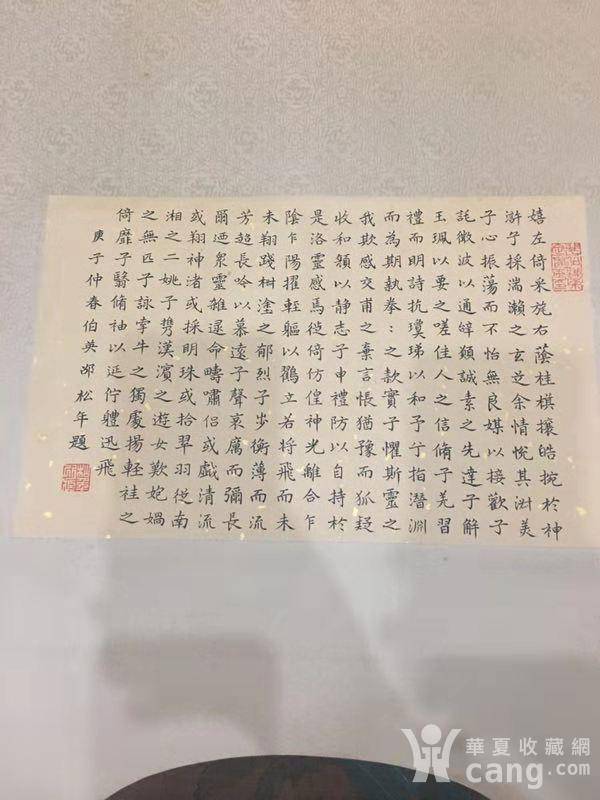 嬉左倚采旄右蔭桂棋攘皓捥於神
滸兮採湍瀨之玄芝余情悅其淑美
兮心振蕩而不怡無良媒以接歡兮
託微波以通辭願誠素之先達兮解
玉珮以要之嗟佳人之信脩兮羌習
禮而明詩抗瓊珶以和予兮指潛淵
而為期執拳:之款實兮懼斯靈之
我欺感交甫之棄言悵猶豫而狐疑
收和顏以静志兮申禮防以自持於
是洛靈感焉徙倚仿偟神光離合乍
陰乍陽擢輕軀以鶴立若将飛而未
未翔踐椒塗之郁烈兮步衡薄而流
芳超長吟以慕遠兮聲哀厲而彌長
爾迺衆靈雜遝命疇嘯侣或戲清流
或翔神渚或採明珠或拾翠羽從南
湘之二姚兮携漢濱之遊女歎妑媧
之無匹兮詠牽牛之獨處揚輕袿之
倚靡兮翳脩袖以延佇軆迅飛
庚子仲春伯英 松年題
華夏收藏網
cang.com